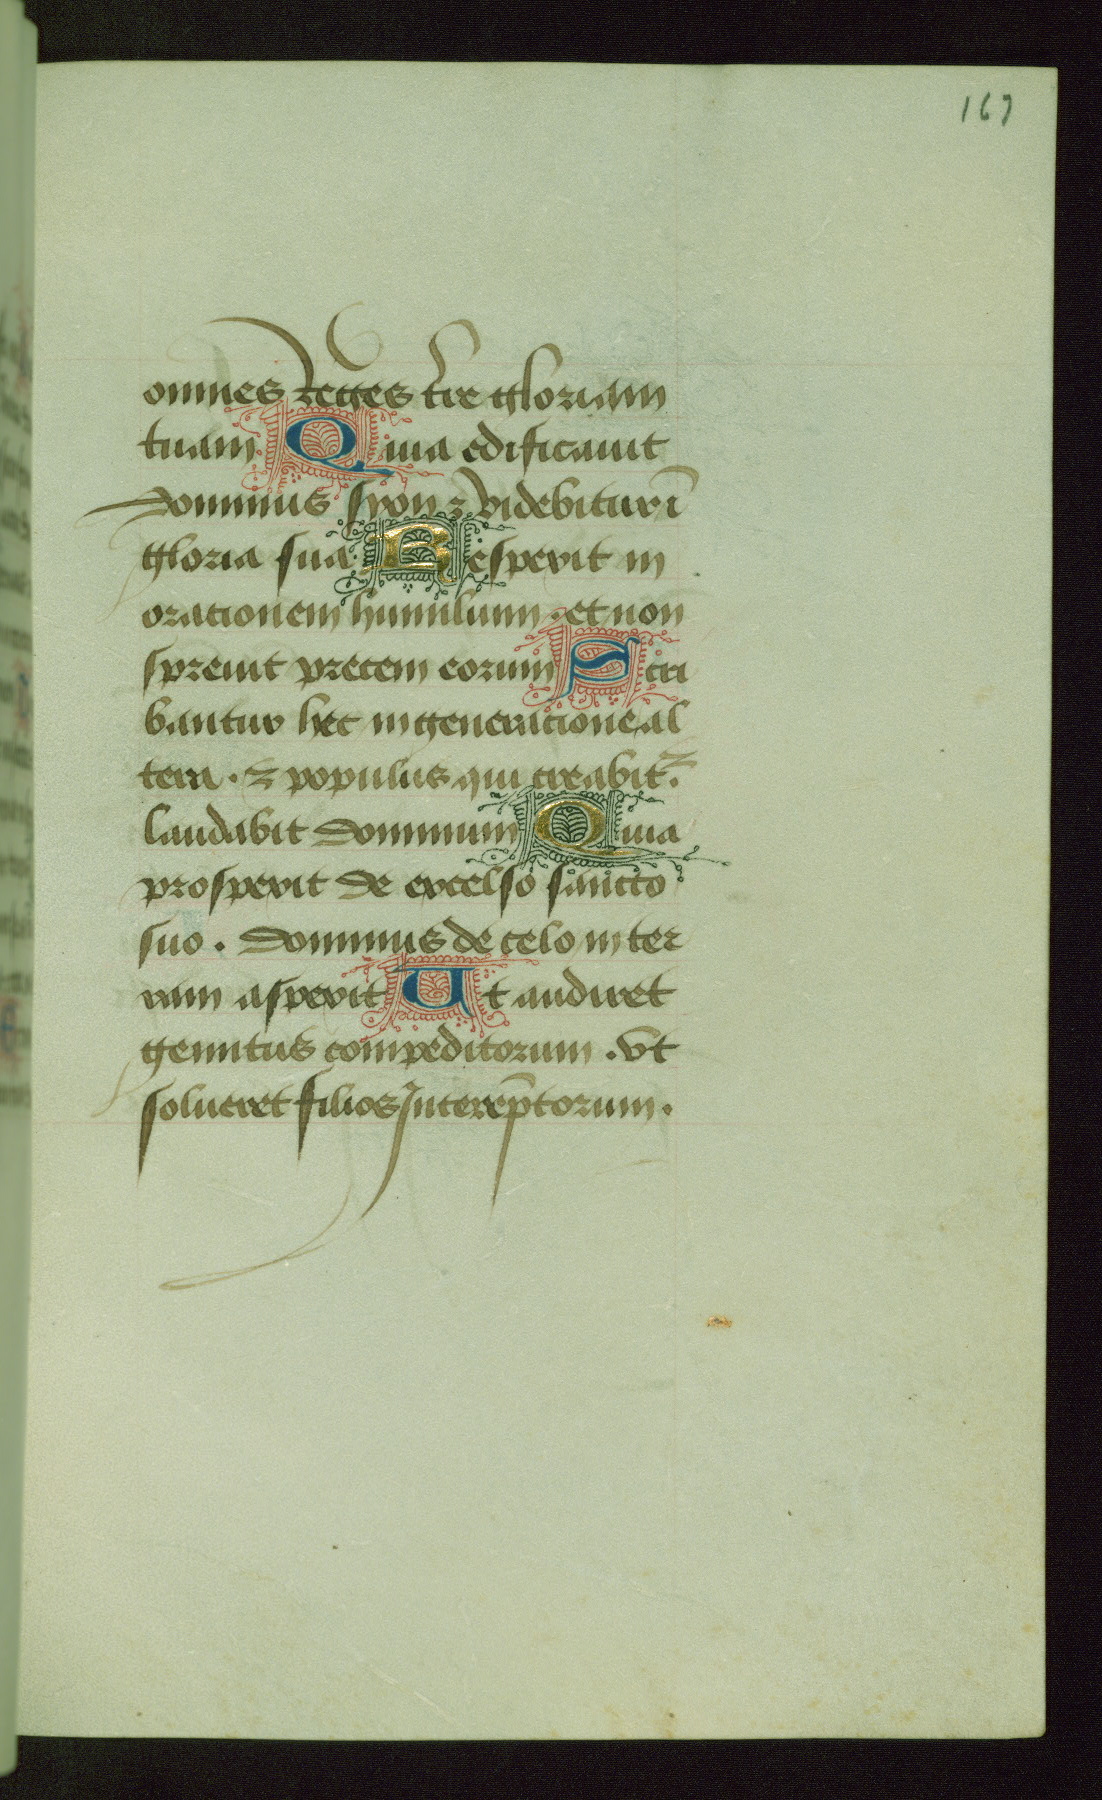 167
omnes Reges tr̄e gloriam
tuam Quia edificauit
dominus syon ⁊ videbitur ī
gloria sua. Respexit in
orationem humilium . et non
spreuit precem eorum Scri
bantur hec in generacione al
tera . ⁊ populus qui creabit᷑
laudabit dominum Quia
prospexit de excelso sancto
suo . dominus de celo in ter
ram aspexit Ut audiret
gemitus compeditorum . vt
solueret filios Interēptorum .